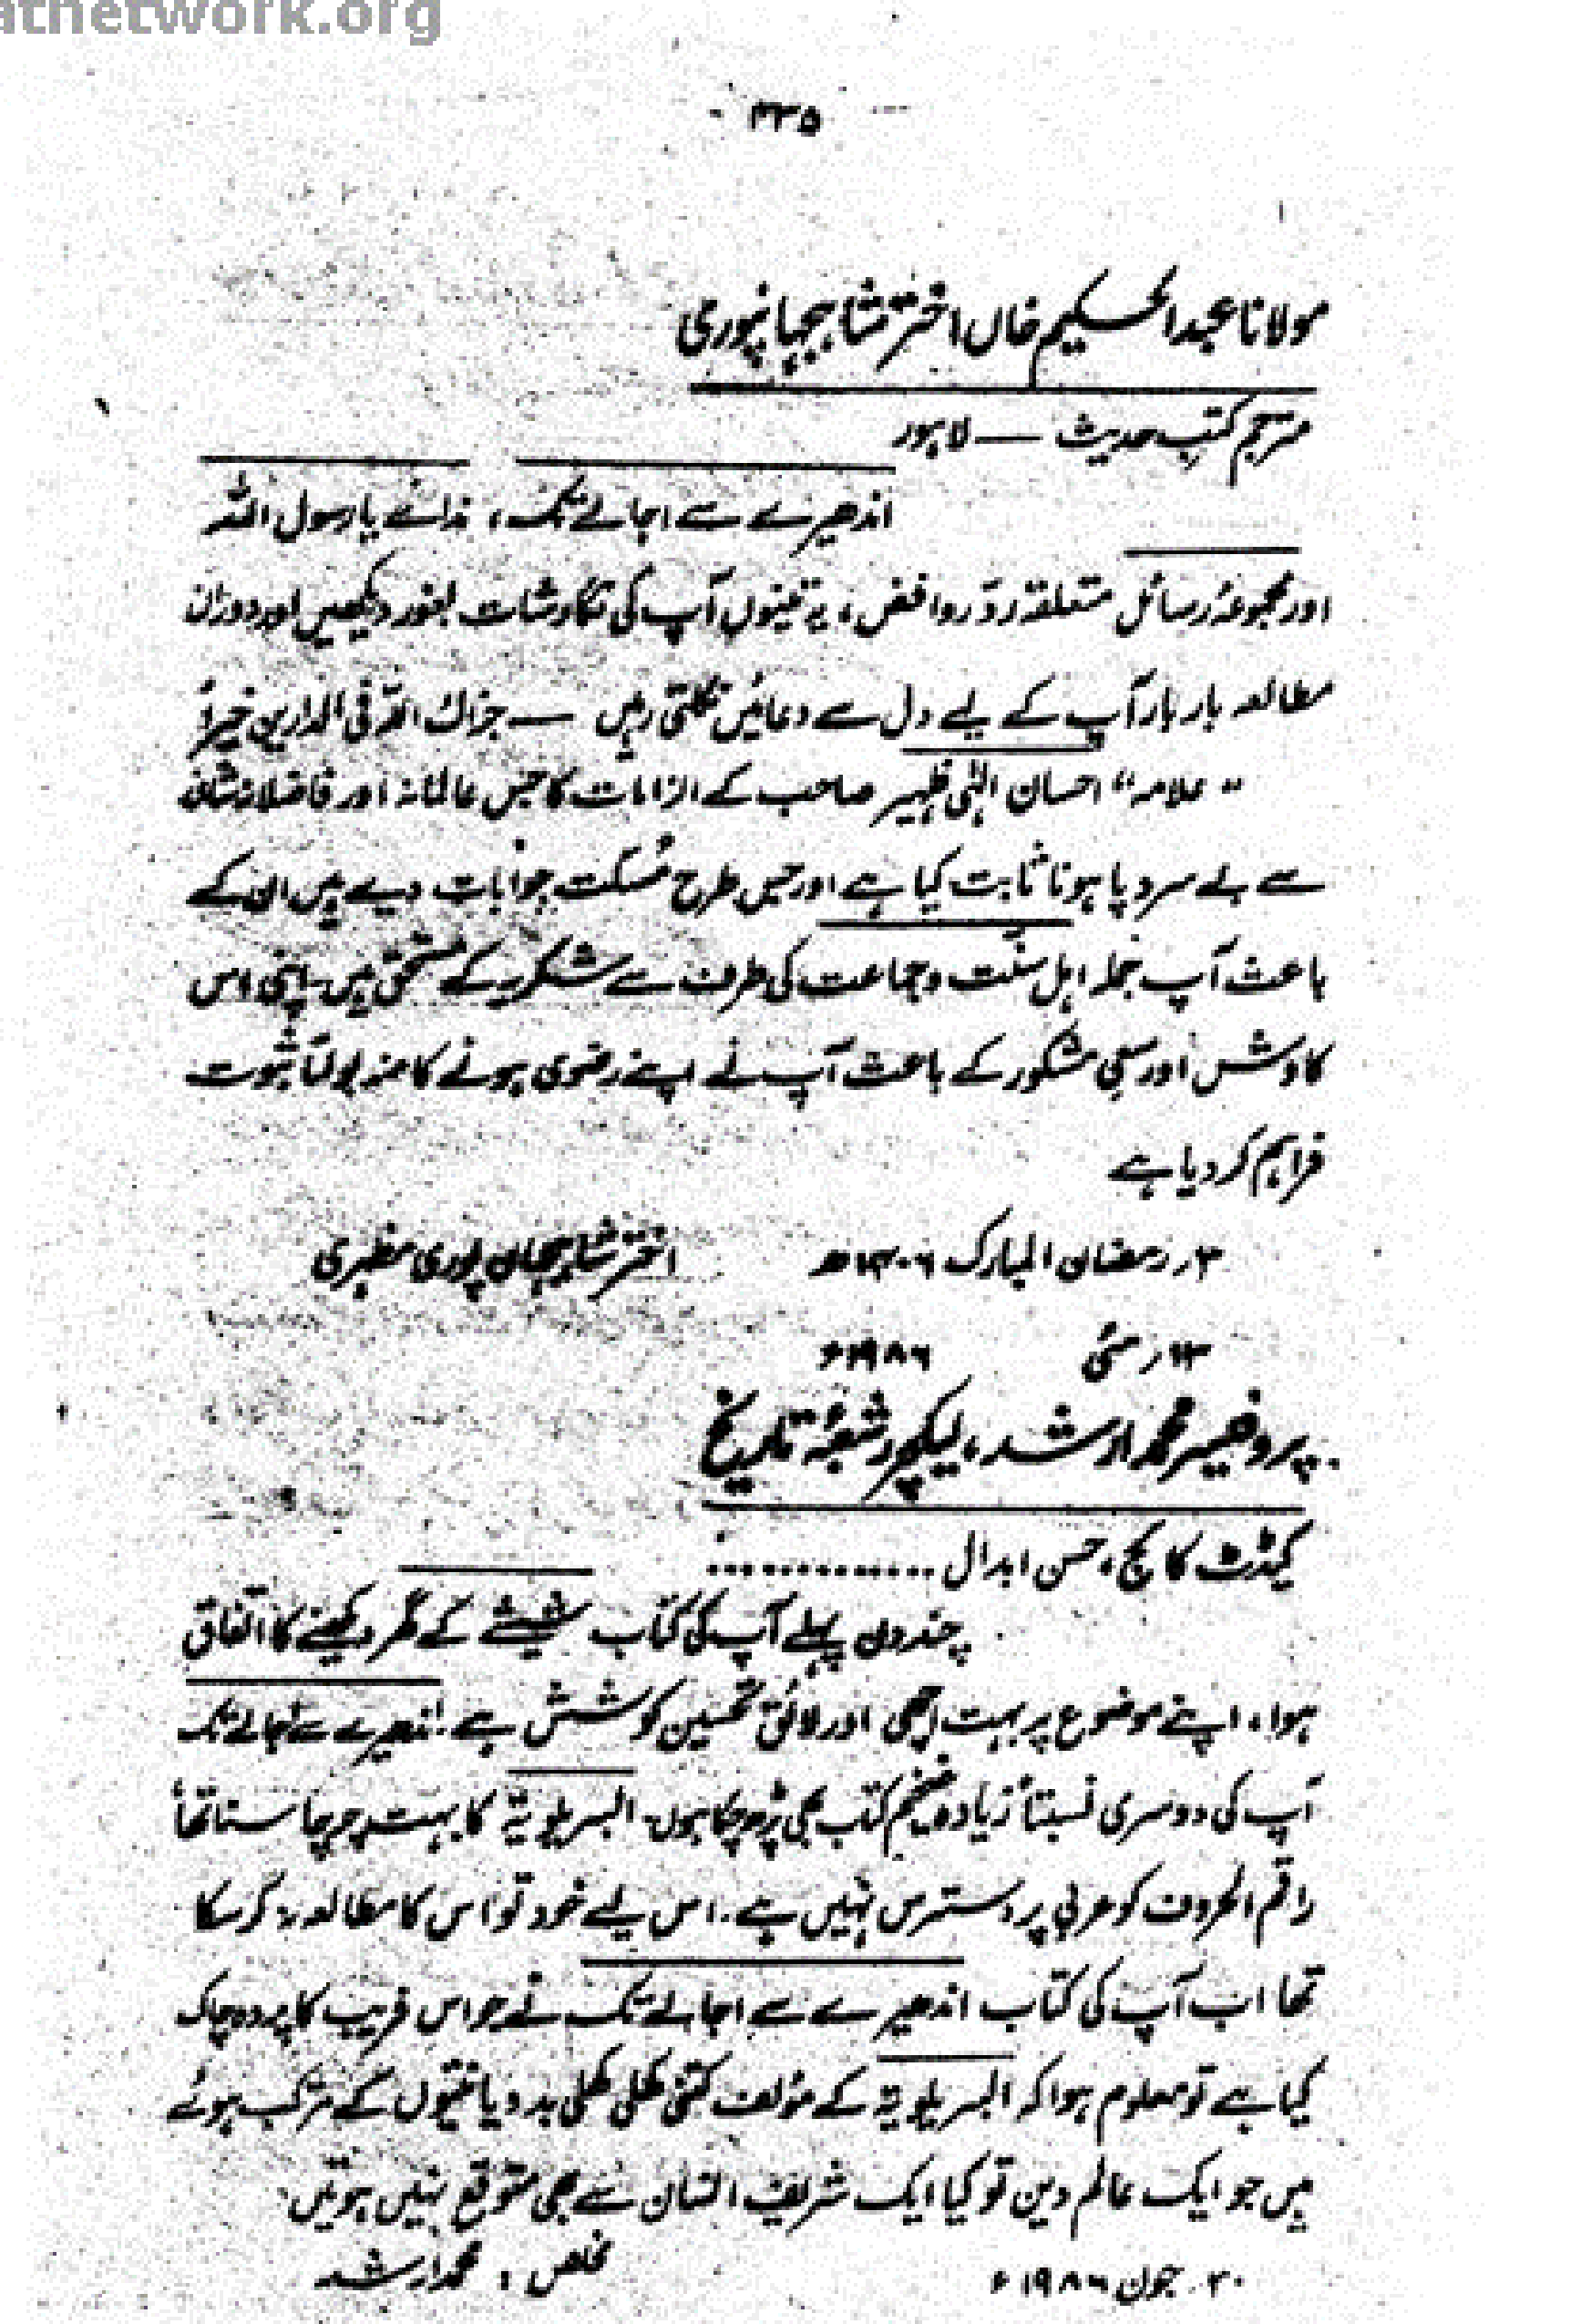 atnetwork.org
۳۳۵
مولانا عبد الحکیم خاں اختر شاہجہانپوری
مترجم کتب حدیث — لاہور
اندھیرے سے اجالے تک، ندائے یا رسول اللہ
اور مجموعۂ رسائل متعلقہ ردِّ روافض، یہ تینوں آپ کی نگارشات بغور دیکھیں اور دوران
مطالعہ بار بار آپ کے لیے دل سے دعائیں نکلتی رہیں — جزاک اللہ فی الدارین خیراً
"علامہ" احسان الٰہی ظہیر صاحب کے الزامات کا جس عالمانہ اور فاضلانہ شان
سے بے سروپا ہونا ثابت کیا ہے اور جس طرح مُسکت جوابات دیے ہیں ان کے
باعث آپ جملہ اہل سنّت و جماعت کی طرف سے شکریے کے مستحق ہیں۔ اپنی اس
کاوش اور سعی مشکور کے باعث آپ نے اپنے رضوی ہونے کا منہ بولتا ثبوت
فراہم کر دیا ہے
۳؍ رمضان المبارک ۱۴۰۶ھ اختر شاہجہان پوری مظہری
۱۳؍ مئی ۱۹۸۶ء
پروفیسر محمد ارشد، لیکچرر شعبۂ تاریخ
کیڈٹ کالج، حسن ابدال ..............
چند دن پہلے آپ کی کتاب شیشے کے گھر دیکھنے کا اتفاق
ہوا، اپنے موضوع پر بہت اچھی اور لائق تحسین کوشش ہے۔ اندھیرے سے اجالے تک
آپ کی دوسری نسبتاً زیادہ ضخیم کتب بھی پڑھ چکا ہوں۔ البریلویۃ کا بہت چرچا سنا تھا
راقم الحروف کو عربی پر دسترس نہیں ہے۔ اس لیے خود تو اس کا مطالعہ نہ کر سکا
تھا اب آپ کی کتاب اندھیرے سے اجالے تک نے جو اس فریب کا پردہ چاک
کیا ہے تو معلوم ہوا کہ البریلویۃ کے مؤلف کتنی کھلی کھلی بددیانتیوں کے مرتکب ہوئے
ہیں جو ایک عالم دین تو کیا ایک شریف انسان سے بھی متوقع نہیں ہوتیں
۲۰ جون ۱۹۸۶ء مخلص: محمد ارشد